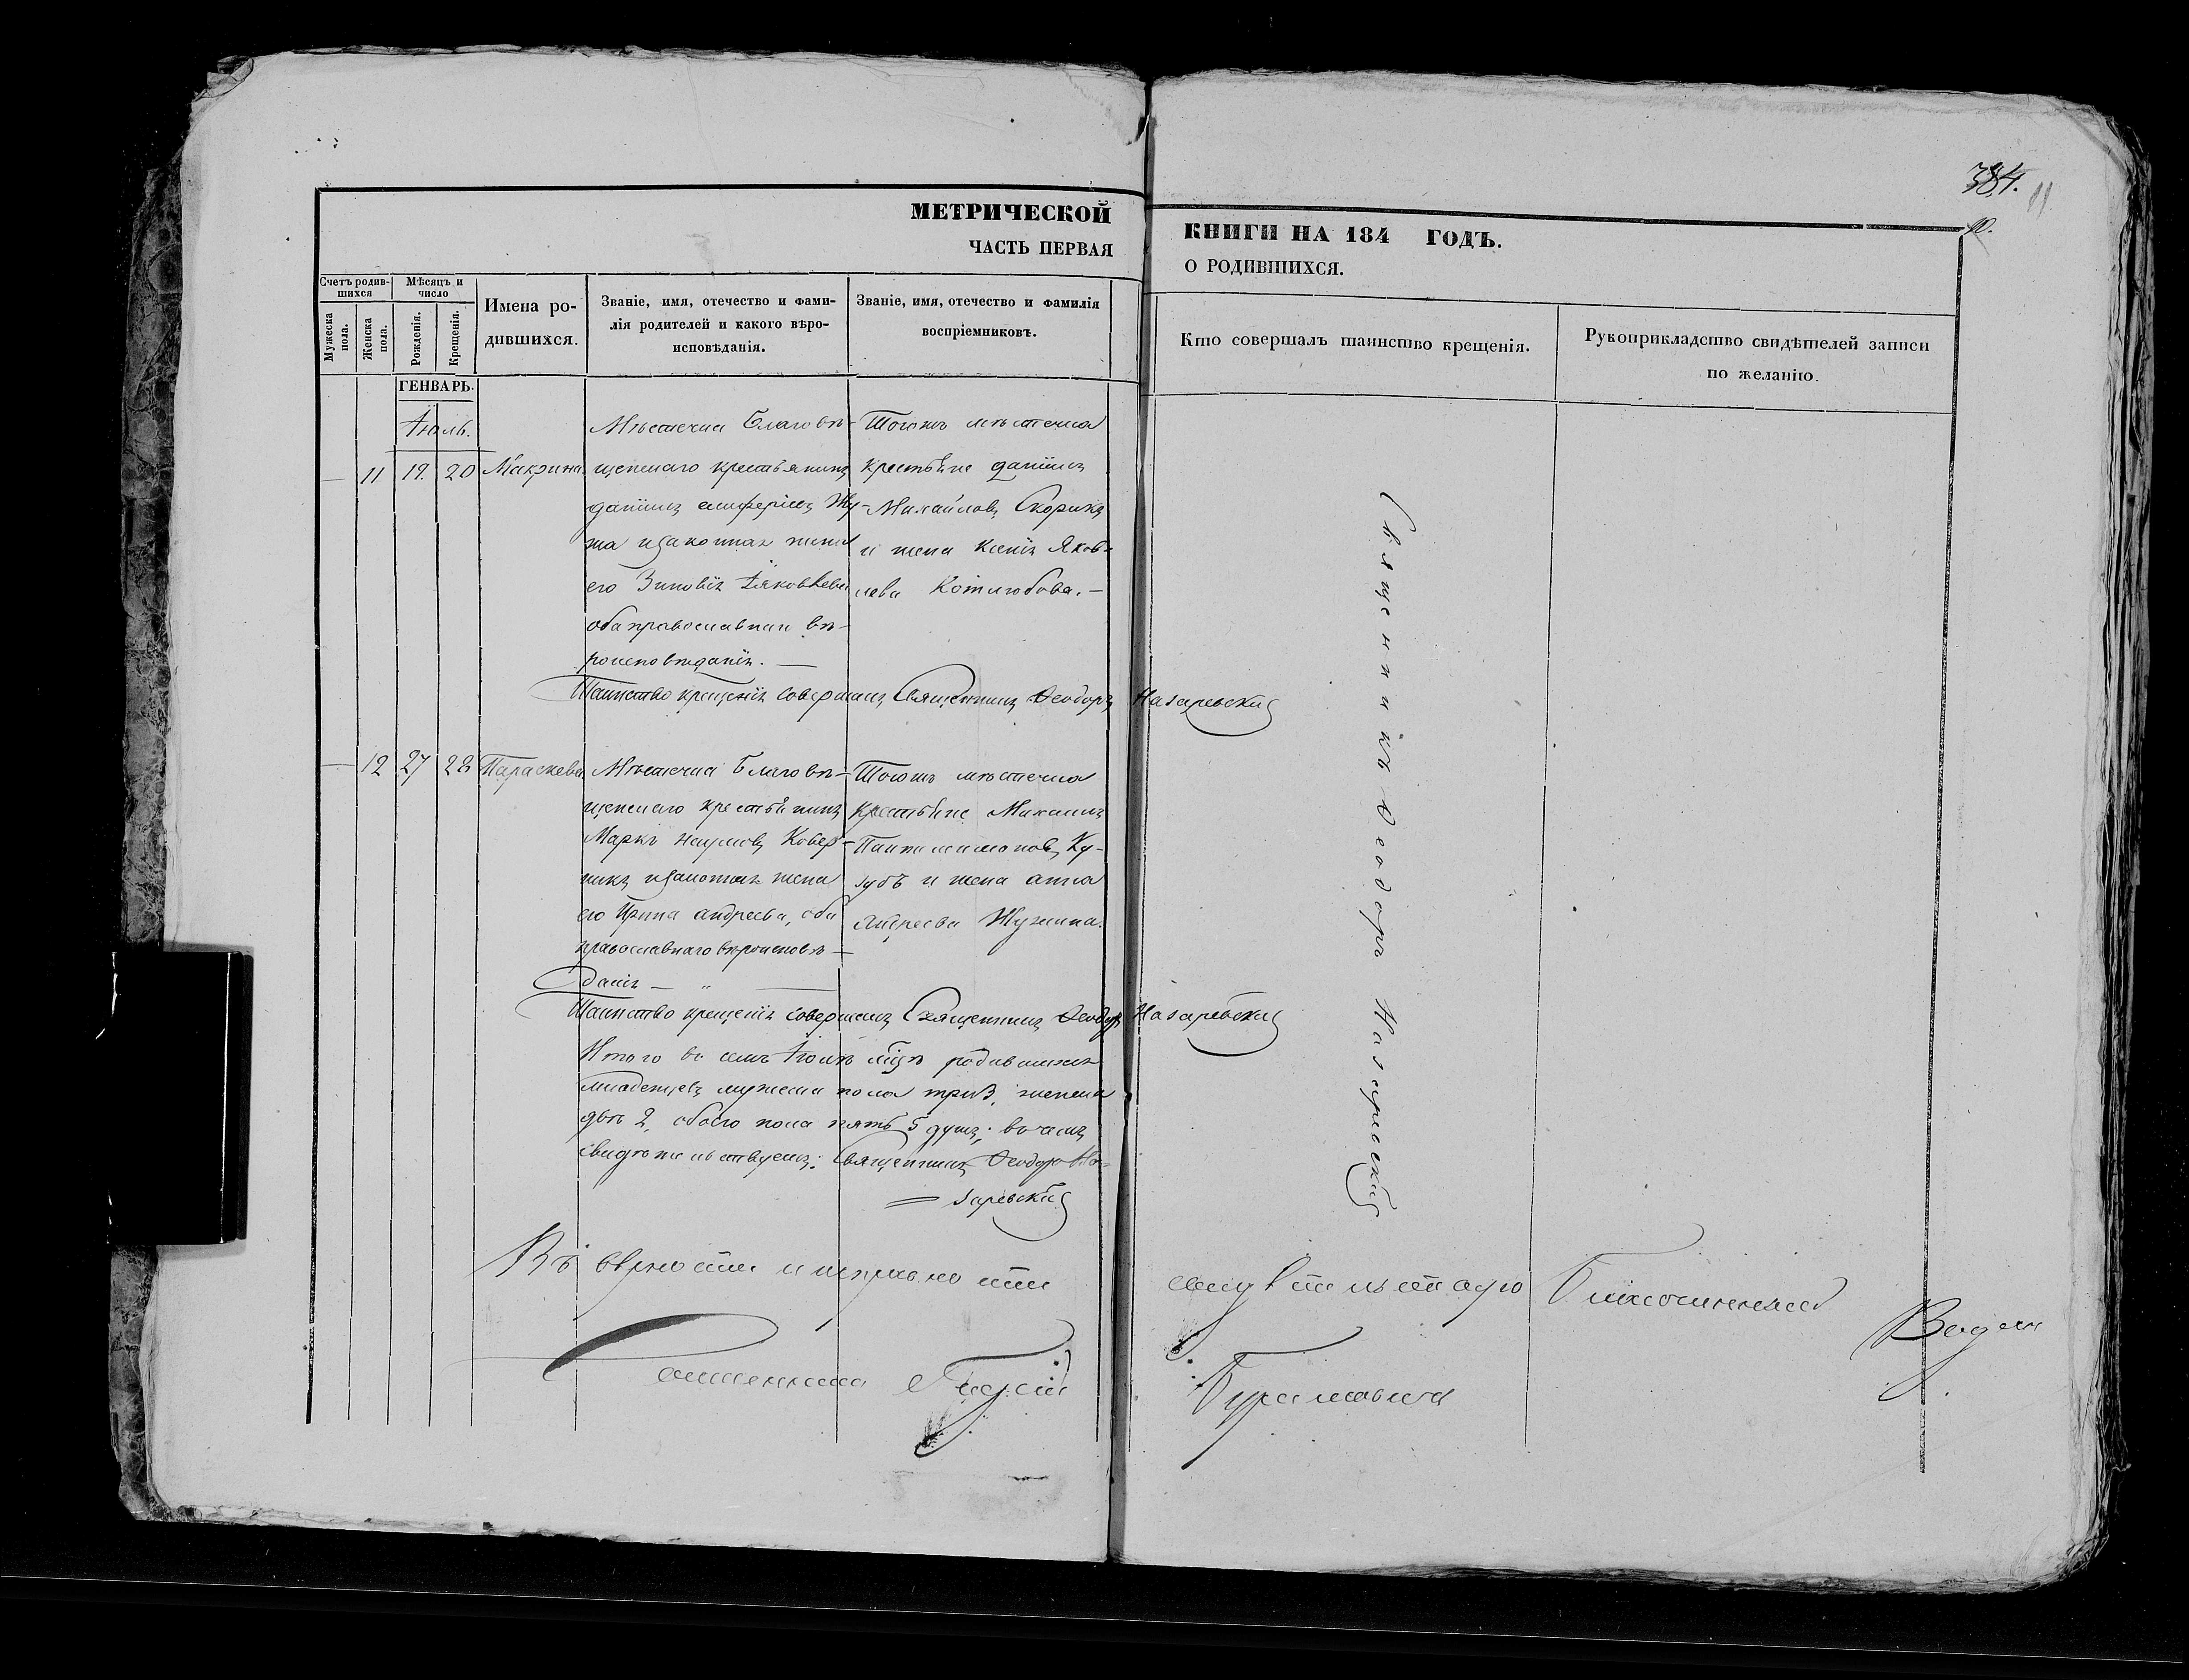 384.
11
10.
МЕТРИЧЕСКОЙ
ЧАСТЬ ПЕРВАЯ
КНИГИ НА 184 ГОДЪ.
О РОДИВШИХСЯ.
Счетъ родив-
шихся
Мужеска пола.
Женска пола.
Мѣсяцъ и
число
Рожденія.
Крещенія.
Имена ро-
дившихся.
Званіе, имя, отечество и фами-
лія родителей и какого вѣро-
исповѣданія.
Званіе, имя, отечество и фамилія
воспріемниковъ.
Кто совершалъ таинство крещенія.
Рукоприкладство свидѣтелей записи
по желанію.
ГЕНВАРЬ.
Іюль.
— 11 19. 20 Макрина
Мѣстечка Благовѣ-
щенскаго крестьянинъ
Даніилъ Елиферіевъ Жу-
ка и законная жена
его Зиновія Іяковлева
оба православнаи вѣ-
роисповѣданія. —
Тогожъ мѣстечка
крестьяне Даніилъ
Михайловъ Скорикъ
и жена Ксенія Яков-
лева Котлюбова. —
Таинство крещенія совершалъ Священникъ Ѳеодоръ Назаревскій
— 12 27 28 Параскева
Мѣстечка Благовѣ-
щенскаго крестьянинъ
Маркъ Наумовъ Ковер-
никъ и законная жена
его Ирина Андреева, оба
православнаго вѣроисповѣ-
данія —
Тогожъ мѣстечка
крестьяне Михаилъ
Пантелимоновъ Ку-
зубъ и жена Анна
Андреева
Таинство крещенія совершалъ Священникъ Ѳеодоръ Назаревскій
Итого въ семъ Іюлѣ мцѣ родившихся
младенцевъ мужеска пола три 3, женска
двѣ 2, обоего пола пять 5 душъ; въ чемъ
свидѣтельствуемъ: Священникъ Ѳеодоръ На-
заревскій
Священникъ Ѳеодоръ Назаревскій
Въ вѣрности и исправности свидѣтельствую Благочинный
Священникъ